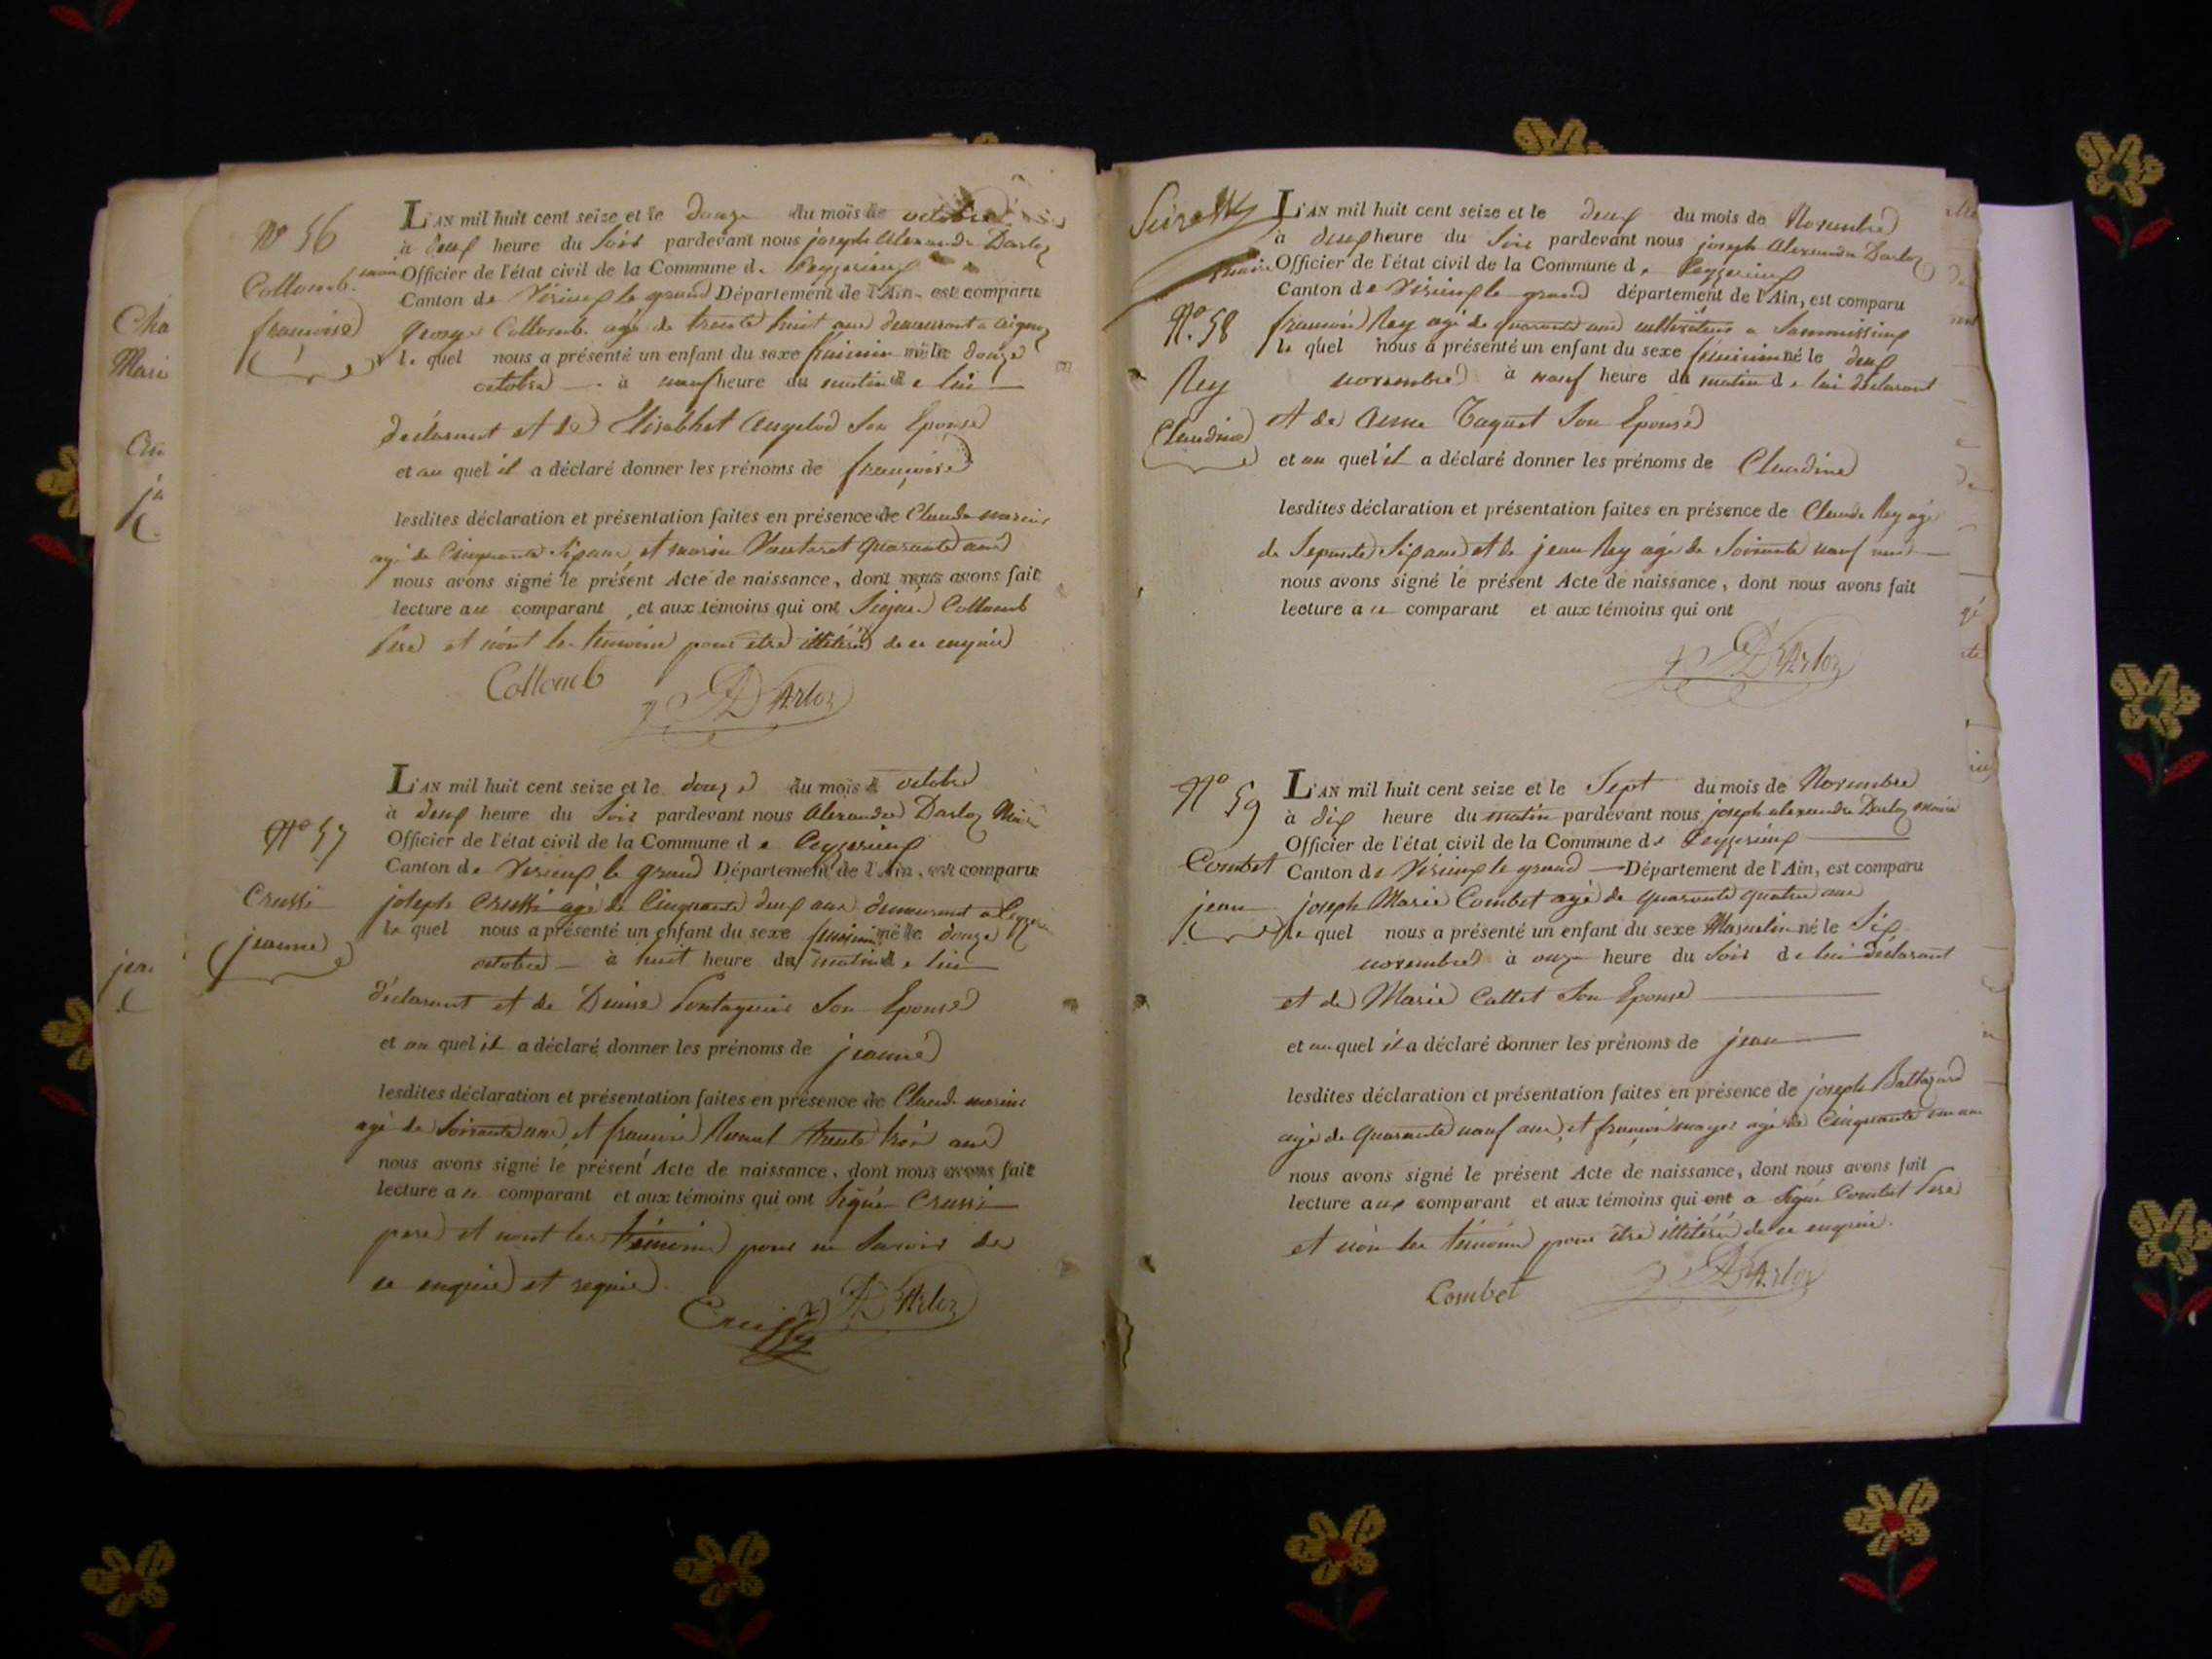 N° 56
Collomb
françoise
L'AN mil huit cent seize et le douze du mois de octobre
à deux heure du soir pardevant nous joseph alexandre Darloz
maire Officier de l'état civil de la Commune de Peyzerieux
Canton de Virieux le grand Département de l'Ain, est comparu
george Collomb agé de trente huit ans demeurant a
le quel nous a présenté un enfant du sexe feminin né le douze
octobre à neuf heure du matin de lui
déclarant et de Elisabhet angelod son Epouse
et au quel il a déclaré donner les prénoms de françoise
lesdites déclaration et présentation faites en présence de Claude marin
agé de Cinquante Six ans et marin quarante ans
nous avons signé le présent Acte de naissance, dont nous avons fait
lecture au comparant, et aux témoins qui ont Signé Collomb
Pere et non les temoins pour etre illitérés de ce enquis
Collomb DArloz
N° 57
Crussi
jeanne
L'AN mil huit cent seize et le douze du mois de octobre
à deux heure du soir pardevant nous Alexandre Darloz Maire
Officier de l'état civil de la Commune de Peyzerieux
Canton de Virieux le grand Département de l'Ain, est comparu
joseph Crussi agé de Cinquante deux ans demeurant a
le quel nous a présenté un enfant du sexe feminin né le douze
octobre à huit heure du matin de lui
déclarant et de Denise son Epouse
et au quel il a déclaré donner les prénoms de jeanne
lesdites déclaration et présentation faites en présence de Claude marin
agé de Soixante ans et françois trente trois ans
nous avons signé le présent Acte de naissance, dont nous avons fait
lecture a ce comparant et aux témoins qui ont Signé Crussi
pere et nont les témoins pour ne Savoir de
ce enquis et requis.
DArloz
L'AN mil huit cent seize et le deux du mois de Novembre
à deux heure du soir pardevant nous joseph alexandre Darloz
maire Officier de l'état civil de la Commune de Peyzerieux
Canton de Virieux le grand département de l'Ain, est comparu
N°. 58
Rey
Claudine
françois Rey agé de quarante ans cultivateur a
le quel nous a présenté un enfant du sexe féminin né le deux
novembre à neuf heure du matin de lui déclarant
et de anne son Epouse
et au quel il a déclaré donner les prénoms de Claudine
lesdites déclaration et présentation faites en présence de Claude Rey agé
de Septante Six ans et de jean Rey agé de Soixante neuf ans
nous avons signé le présent Acte de naissance, dont nous avons fait
lecture a ce comparant et aux témoins qui ont
DArloz
N° 59
Combet
jean
L'AN mil huit cent seize et le Sept du mois de Novembre
à dix heure du matin pardevant nous joseph alexandre Darloz maire
Officier de l'état civil de la Commune de Peyzerieux
Canton de Virieux le grand Département de l'Ain, est comparu
joseph Marie Combet agé de quarante quatre ans
le quel nous a présenté un enfant du sexe Masculin né le Six
novembre à onze heure du soir de lui déclarant
et de Marie Cattet Son Epouse
et au quel il a déclaré donner les prénoms de jean
lesdites déclaration et présentation faites en présence de joseph Baltazard
agé de quarante neuf ans, et françois agé de Cinquante un ans
nous avons signé le présent Acte de naissance, dont nous avons fait
lecture aux comparant et aux témoins qui ont a Signé Combet Pere
et non les témoins pour etre illitérés de ce enquis.
Combet DArloz